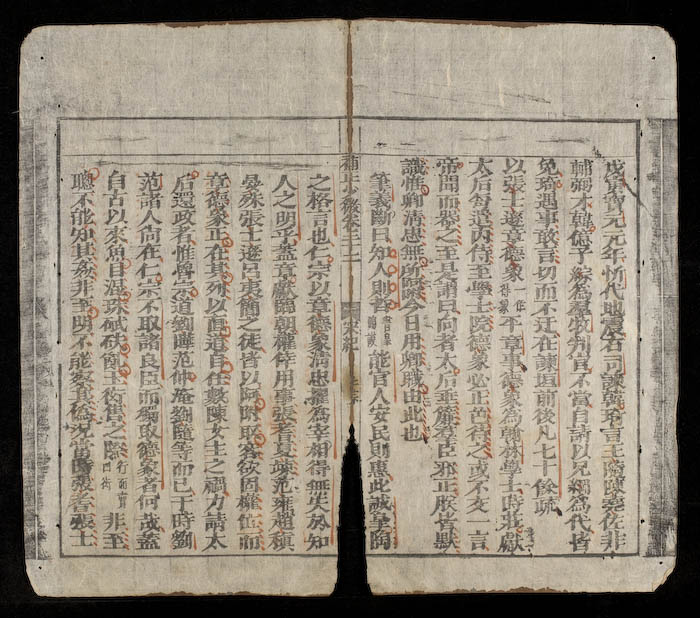 戊寅寶元元年忻代地震右司諫韓琦言王隨陳堯佐非
輔弼才韓億子綜爲羣牧判官不當自請以兄綱爲代皆
免琦遇事敢言切而不迂在諫垣前後凡七十餘疏
以張士遜章德象平章事德象爲翰林學士時莊獻
太后每遣內侍至學士院德象必正色待之或不交一言
帝聞而器之至是謂曰向者太后垂簾羣臣邪正朕皆默
識惟卿清忠無所阿今日用卿職由此也
筆義斷曰知人則哲能官人安民則惠此誠臯陶
補史少微卷三二
宋紀
之格言也仁宗以章德象清忠擢爲宰相得無失於知
人之明乎蓋章獻臨朝權倖用事張耆夏竦范雍趙稹
晏殊張士遜呂夷簡之徒皆以阿附取容欲固權位而
章德象正在其列以直道自任數陳女主之禍力請太
后還政者惟曹宗道劉曄范仲淹劉隨等而已于時劉
范諸人尙在仁宗不取諸良臣而獨取德象者何哉蓋
自古以來魚目混珠碔砆亂玉衒售之際行而賣曰衒非至
聰不能知其姦非至明不能察其僞況當時張耆張士